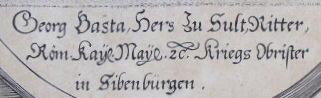 Georg Basta, Hers Zu Sult, Ritter,
Röm. Kaÿ. Maÿ. ꝛc. Kriegs Obrister
in Sibenbürgen.